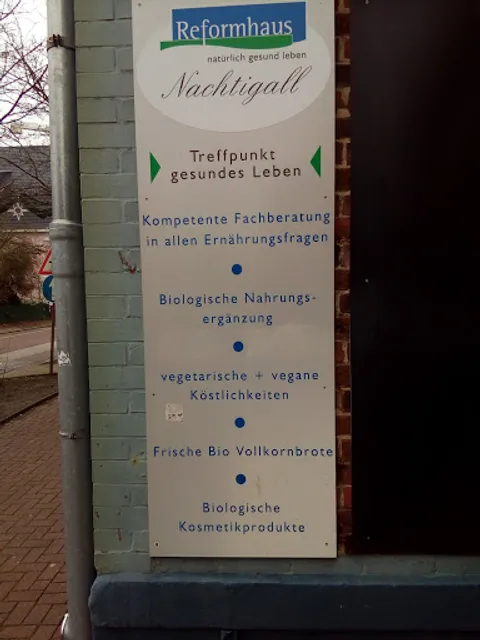 Reformhaus
natürlich gesund leben
Nachtigall
Treffpunkt
gesundes Leben
Kompetente Fachberatung
in allen Ernährungsfragen
Biologische Nahrungs-
ergänzung
vegetarische + vegane
Köstlichkeiten
Frische Bio Vollkornbrote
Biologische
Kosmetikprodukte